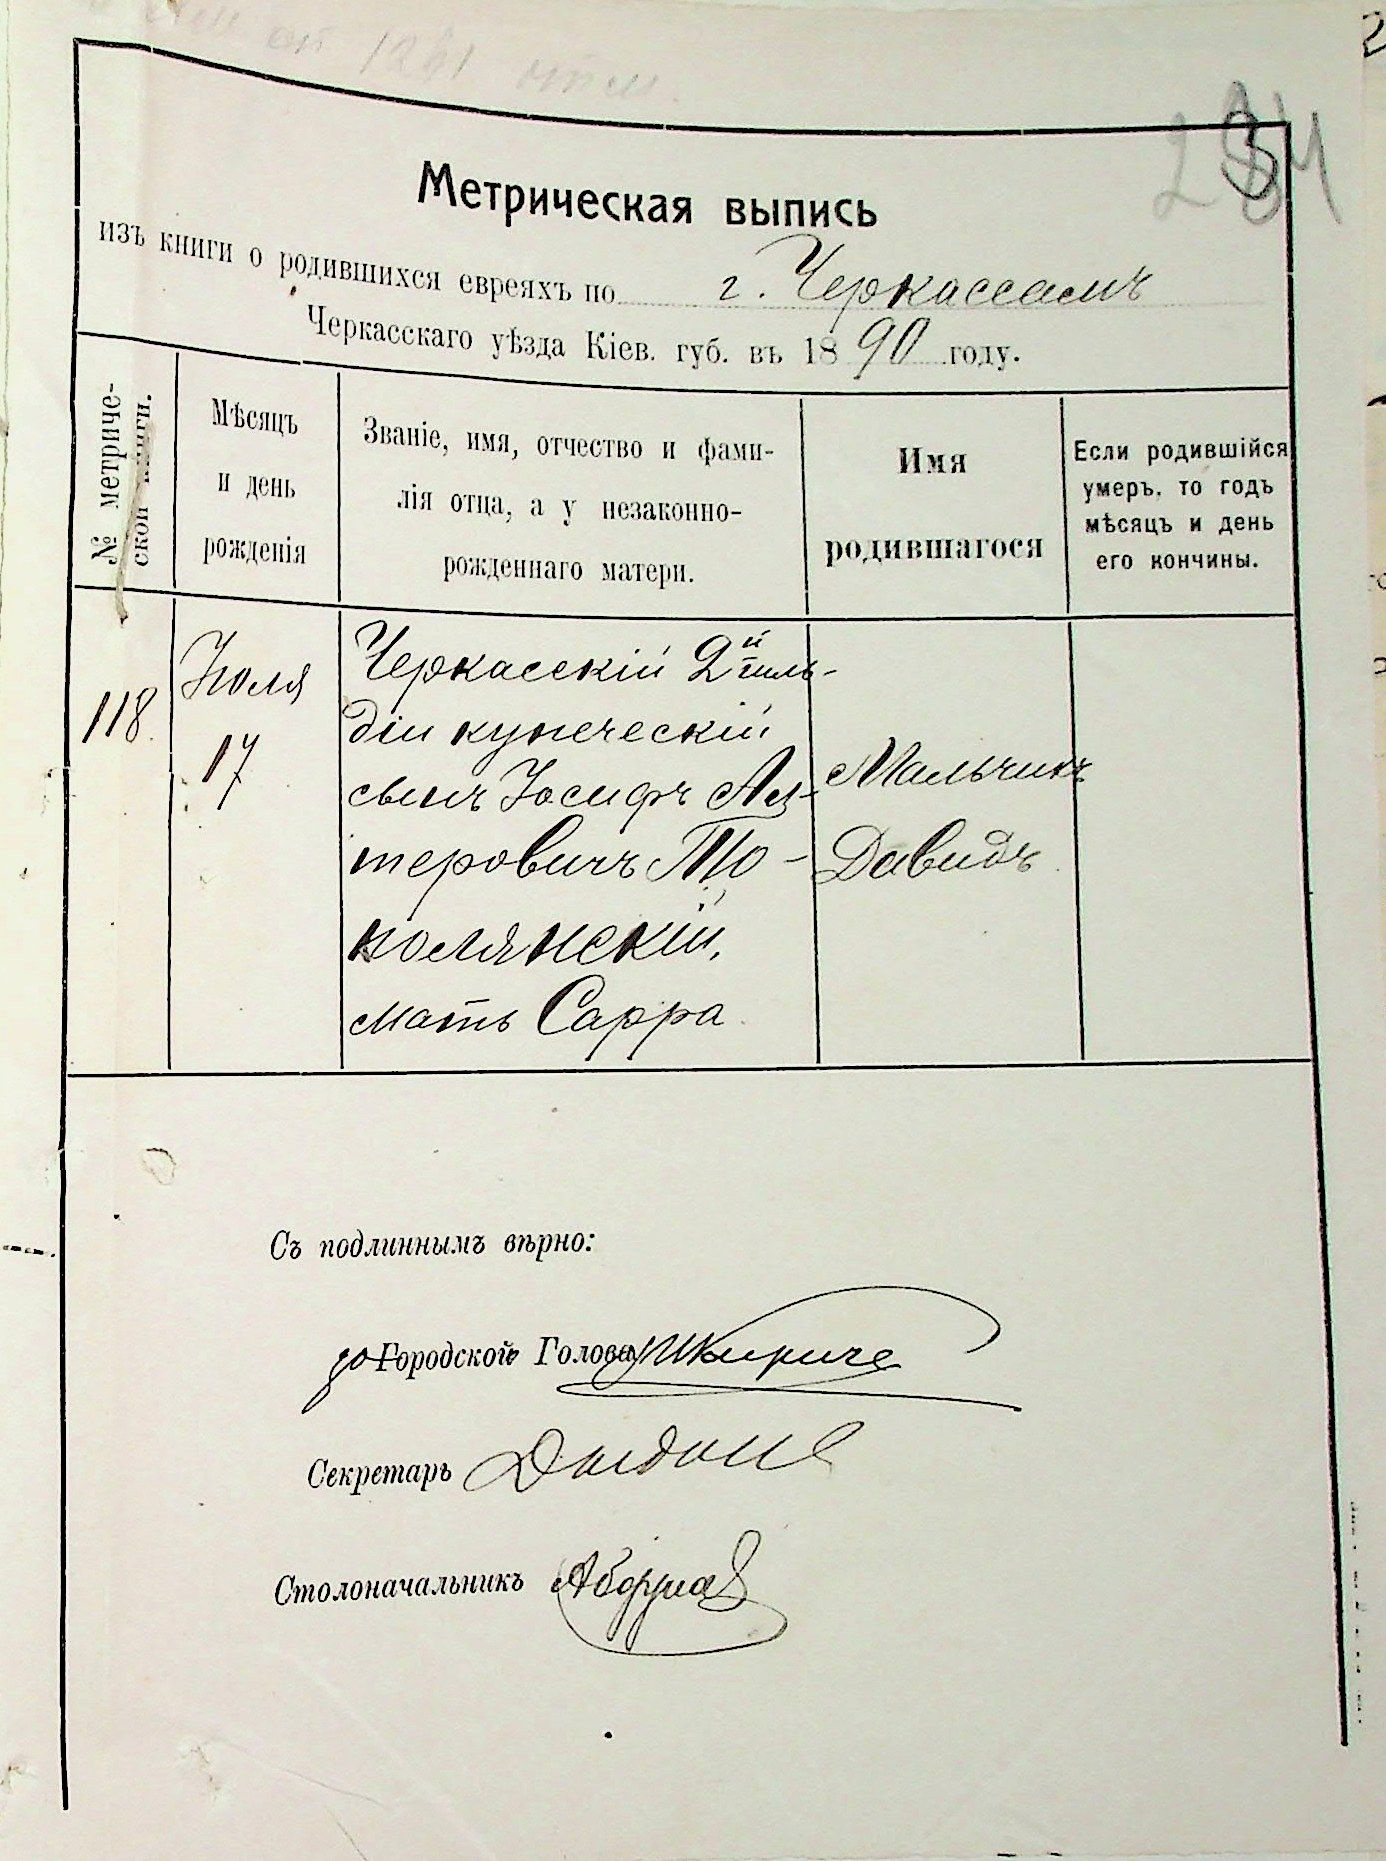 Метрическая выпись
изъ книги о родившихся евреяхъ по г. Черкассамъ
Черкасскаго уѣзда Кіев. губ. въ 1890 году.
№ метриче-
ской книги.
Мѣсяцъ
и день
рожденія
Званіе, имя, отчество и фами-
лія отца, а у незаконно-
рожденнаго матери.
Имя
родившагося
Если родившійся
умеръ, то годъ
мѣсяцъ и день
его кончины.
118.
Іюля
17
Черкасскій 2й гиль-
діи купеческій
сынъ Іосифъ Ал-
теровичъ То-
полянскій,
мать Сарра.
Мальчикъ
Давидъ
Съ подлиннымъ вѣрно:
Городской Голова
Секретарь
Столоначальникъ